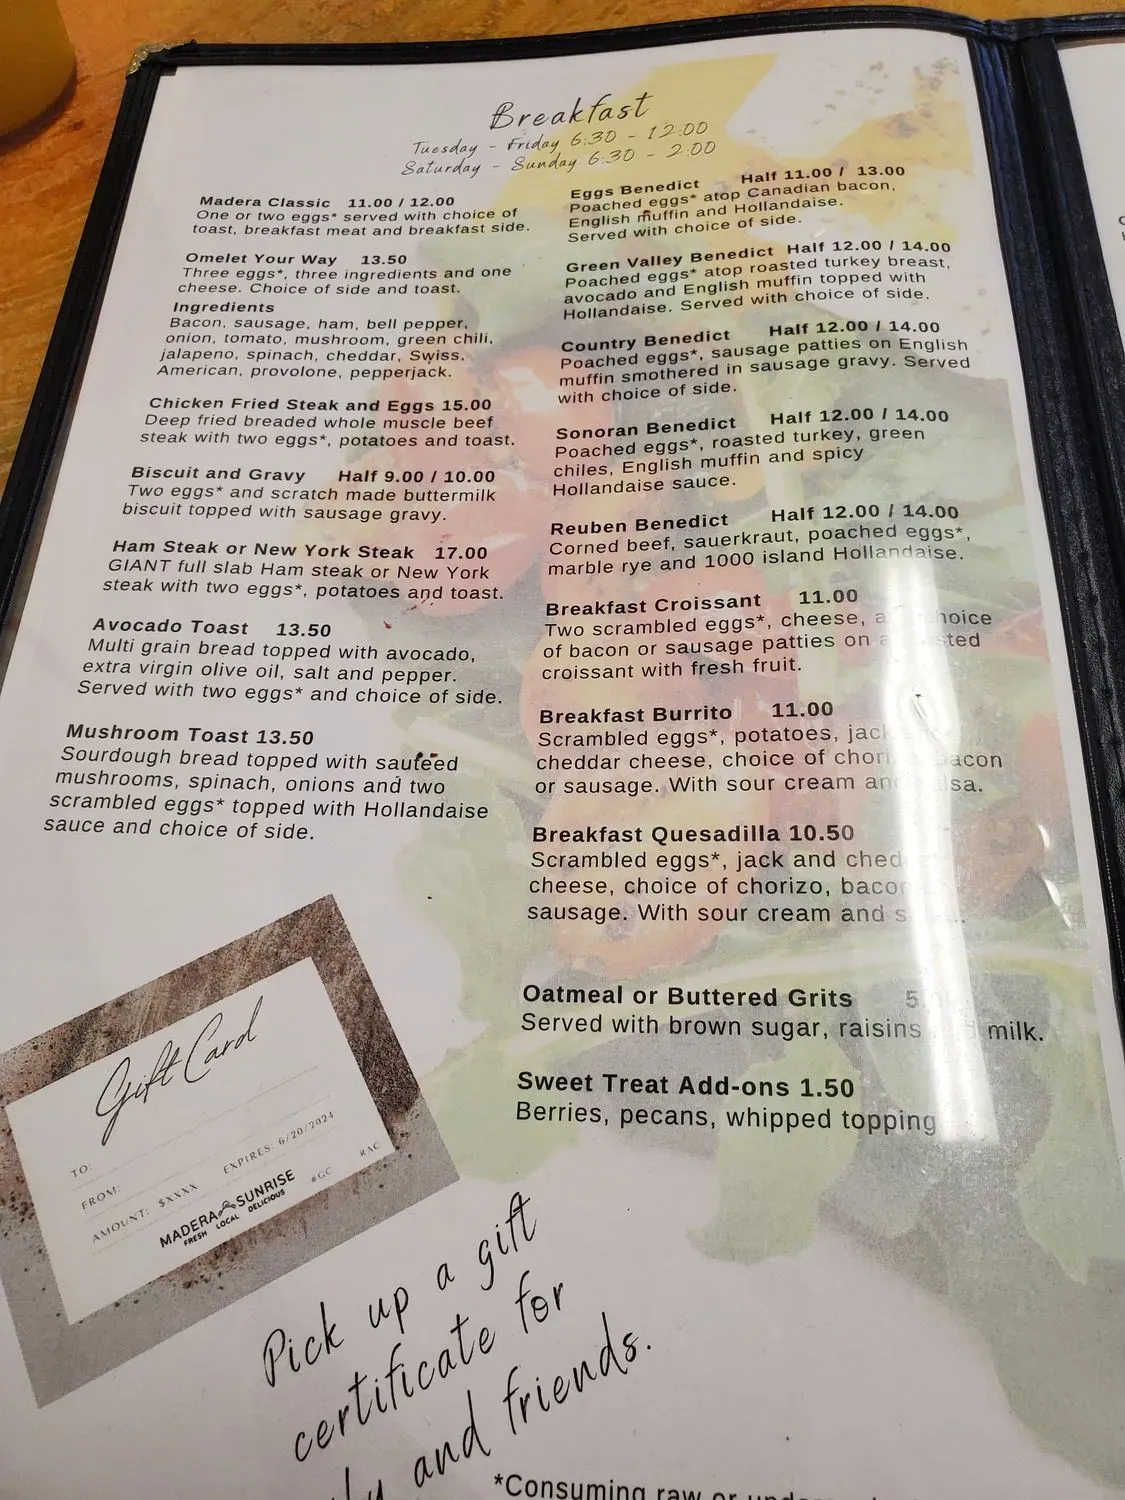 Breakfast
Tuesday - Friday 6:30 - 12:00
Saturday - Sunday 6:30 - 2:00
Madera Classic 11.00 / 12.00
One or two eggs* served with choice of
toast, breakfast meat and breakfast side.
Omelet Your Way 13.50
Three eggs*, three ingredients and one
cheese. Choice of side and toast.
Ingredients
Bacon, sausage, ham, bell pepper,
onion, tomato, mushroom, green chili,
jalapeno, spinach, cheddar, Swiss,
American, provolone, pepperjack.
Chicken Fried Steak and Eggs 15.00
Deep fried breaded whole muscle beef
steak with two eggs*, potatoes and toast.
Biscuit and Gravy Half 9.00 / 10.00
Two eggs* and scratch made buttermilk
biscuit topped with sausage gravy.
Ham Steak or New York Steak 17.00
GIANT full slab Ham steak or New York
steak with two eggs*, potatoes and toast.
Avocado Toast 13.50
Multi grain bread topped with avocado,
extra virgin olive oil, salt and pepper.
Served with two eggs* and choice of side.
Mushroom Toast 13.50
Sourdough bread topped with sauteed
mushrooms, spinach, onions and two
scrambled eggs* topped with Hollandaise
sauce and choice of side.
Eggs Benedict Half 11.00 / 13.00
Poached eggs* atop Canadian bacon,
English muffin and Hollandaise.
Served with choice of side.
Green Valley Benedict Half 12.00 / 14.00
Poached eggs* atop roasted turkey breast,
avocado and English muffin topped with
Hollandaise. Served with choice of side.
Country Benedict Half 12.00 / 14.00
Poached eggs*, sausage patties on English
muffin smothered in sausage gravy. Served
with choice of side.
Sonoran Benedict Half 12.00 / 14.00
Poached eggs*, roasted turkey, green
chiles, English muffin and spicy
Hollandaise sauce.
Reuben Benedict Half 12.00 / 14.00
Corned beef, sauerkraut, poached eggs*,
marble rye and 1000 island Hollandaise.
Breakfast Croissant 11.00
Two scrambled eggs*, cheese, choice
of bacon or sausage patties on a
croissant with fresh fruit.
Breakfast Burrito 11.00
Scrambled eggs*, potatoes, jack
cheddar cheese, choice of chorizo, bacon
or sausage. With sour cream and salsa.
Breakfast Quesadilla 10.50
Scrambled eggs*, jack and cheddar
cheese, choice of chorizo, bacon or
sausage. With sour cream and salsa.
Oatmeal or Buttered Grits
Served with brown sugar, raisins and milk.
Sweet Treat Add-ons 1.50
Berries, pecans, whipped topping
Gift Card
TO:
FROM:
AMOUNT: $XXXX EXPIRES: 6/20/2024
MADERA SUNRISE #GC RAC
FRESH LOCAL DELICIOUS
Pick up a gift
certificate for
and friends.
*Consuming raw or